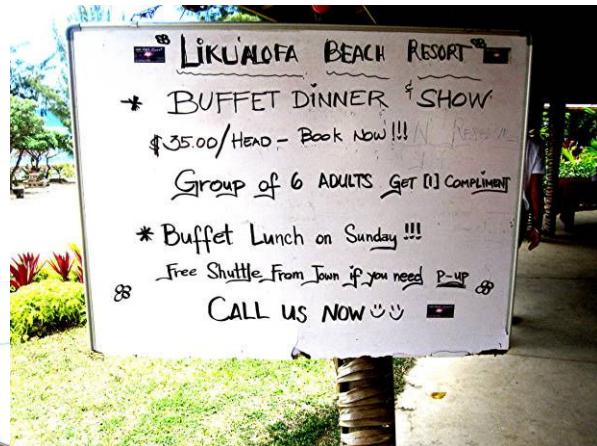 LIKU'ALOFA BEACH RESORT
* BUFFET DINNER & SHOW
$35.00/HEAD - BOOK NOW!!!
Group of 6 ADULTS GET [1] COMPLIMENT
* Buffet Lunch on Sunday !!!
Free Shuttle From Town if you need P-up
CALL US NOW